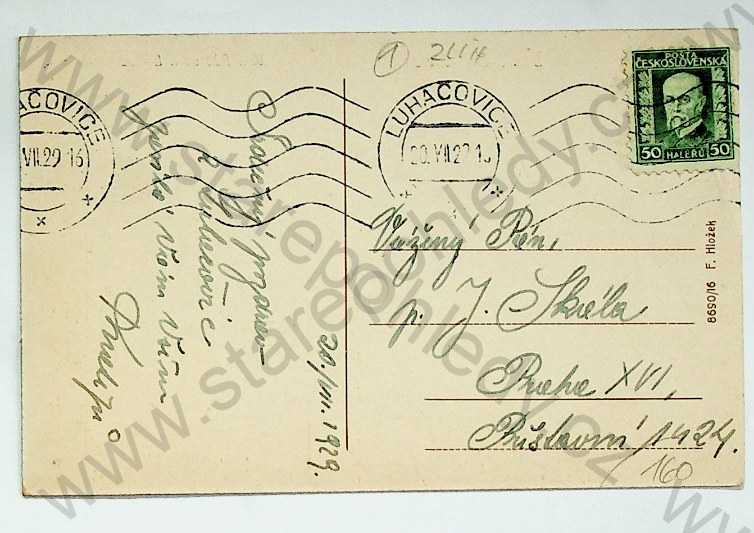 1
LUHAČOVICE
VII.29 16
LUHAČOVICE
20.VII.29.16
POŠTA
ČESKOSLOVENSKÁ
50 HALÉŘŮ 50
Srdečný pozdrav
z Luhačovic
Vám Vašim
20./VII. 1929.
Vážený Pán,
p. J. Skála
Praha XVI,
Přístavní 1424.
160
8690/16 F. Hložek
www.starepohledy.cz
www.starepohledy.cz